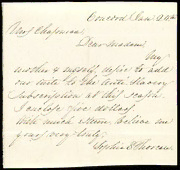 Concord Jan. 24th
Mrs Chapman,
Dear Madam,
My
mother & myself desire to add
our mite to the Anti Slavery
Subscription at this season.
I enclose five dollars
with much esteem believe me
yours very truly,
Sophia E. Thoreau